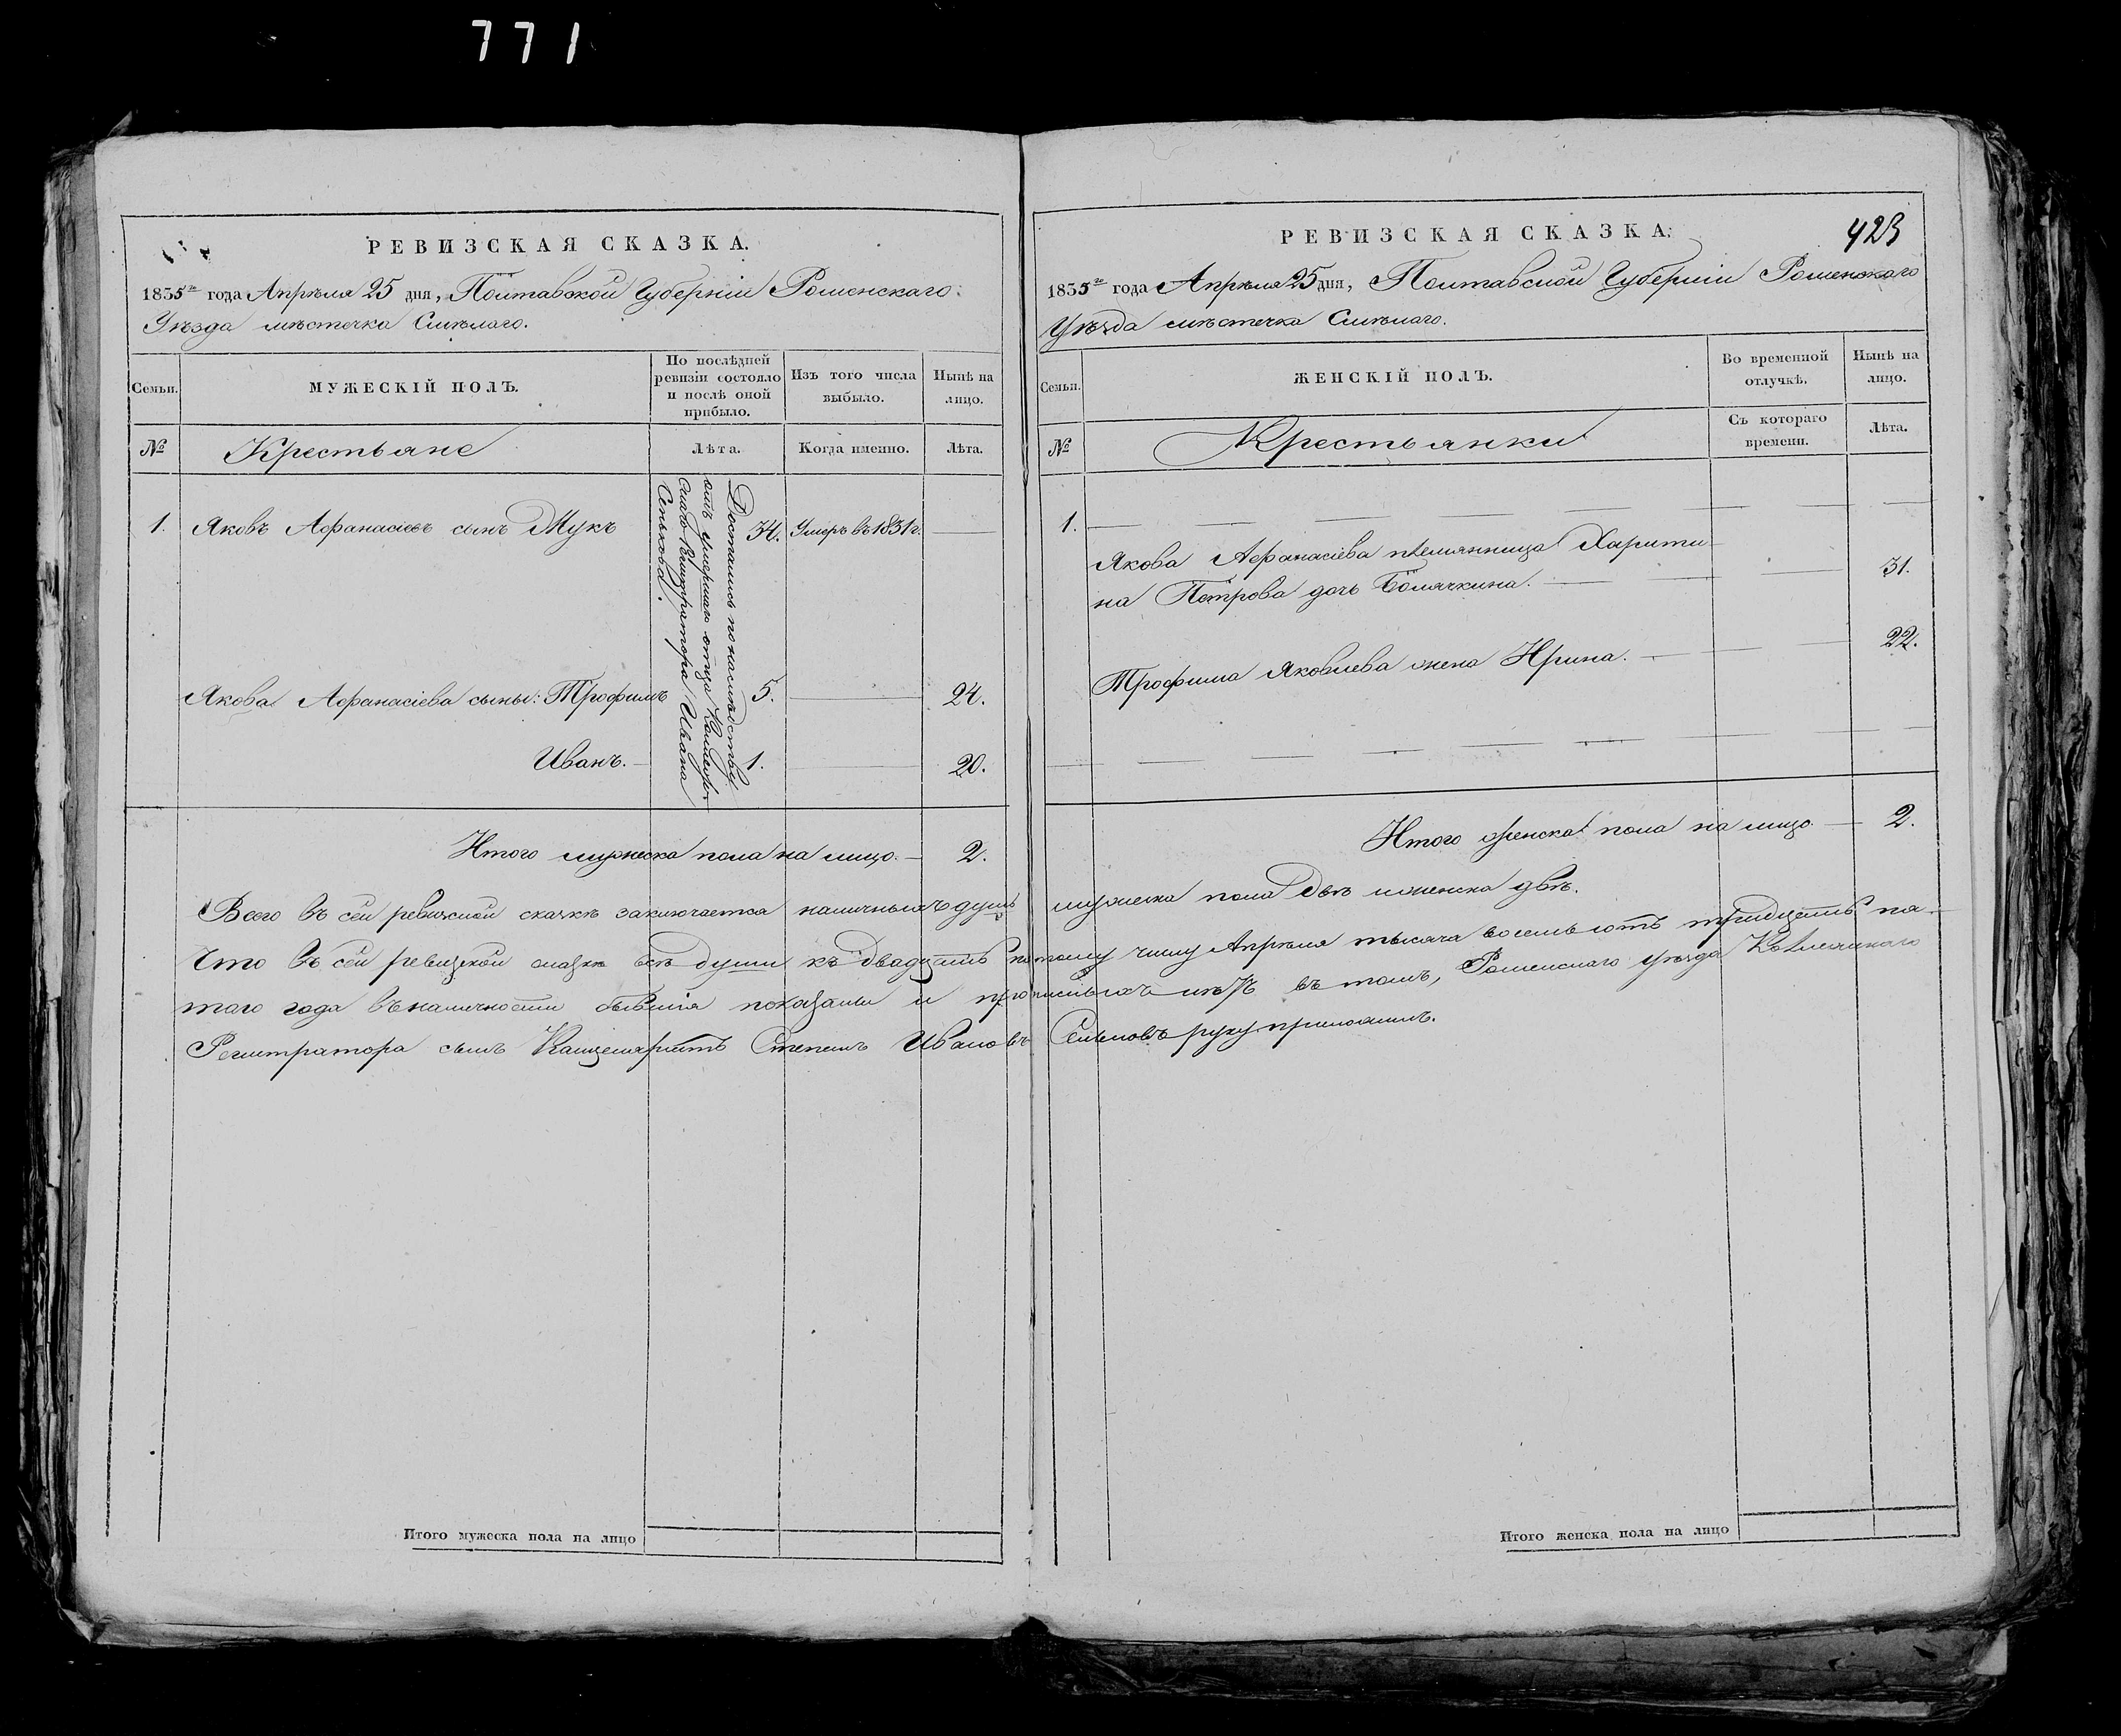 771
РЕВИЗСКАЯ СКАЗКА.
1835го года Апрѣля 25 дня, Полтавской Губерніи Роменскаго
Уѣзда мѣстечка Смѣлаго.
Семьи.
МУЖЕСКІЙ ПОЛЪ.
По послѣдней ревизіи состояло и послѣ оной прибыло.
Изъ того числа выбыло.
Нынѣ на лицо.
№
Крестьяне
Лѣта.
Когда именно.
Лѣта.
1. Яковъ Афанасіевъ сынъ Мукъ 34. Умеръ въ 1831г.
Достались по наслѣдству
отъ умершаго отца Коллеж-
скаго Регистратора Ивана
Якова Афанасіева сыны: Трофимъ 5. 24.
Иванъ. 1. 20.
Итого мужеска пола на лицо. 2.
РЕВИЗСКАЯ СКАЗКА.
423
1835го года Апрѣля 25 дня, Полтавской Губерніи Роменскаго
Уѣзда мѣстечка Смѣлаго.
Семьи.
ЖЕНСКІЙ ПОЛЪ.
Во временной отлучкѣ.
Нынѣ на лицо.
№
Крестьянки
Съ котораго времени.
Лѣта.
1.
Якова Афанасіева племянница Харити-
на Петрова дочь 31.
Трофима Яковлева жена Ирина. 22.
Итого женска пола на лицо 2.
Всего въ сей ревизской сказкѣ заключается наличныхъ душъ мужеска пола двѣ и женска двѣ.
Что въ сей ревизской сказкѣ всѣ души къ двадцать пятому числу Апрѣля тысяча восемьсотъ тридцать пя-
таго года въ наличности бывшія показаны и прописныхъ нѣтъ въ томъ, Роменскаго уѣзда
Регистратора сынъ Канцеляристъ Степанъ Ивановъ руку приложилъ.
Итого мужеска пола на лицо
Итого женска пола на лицо